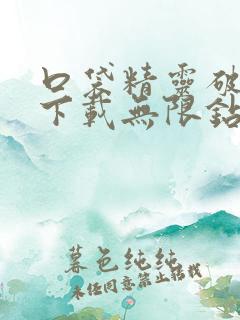 口袋精靈破
下載無限鉆
暮色纯纯
未经同意禁止转载